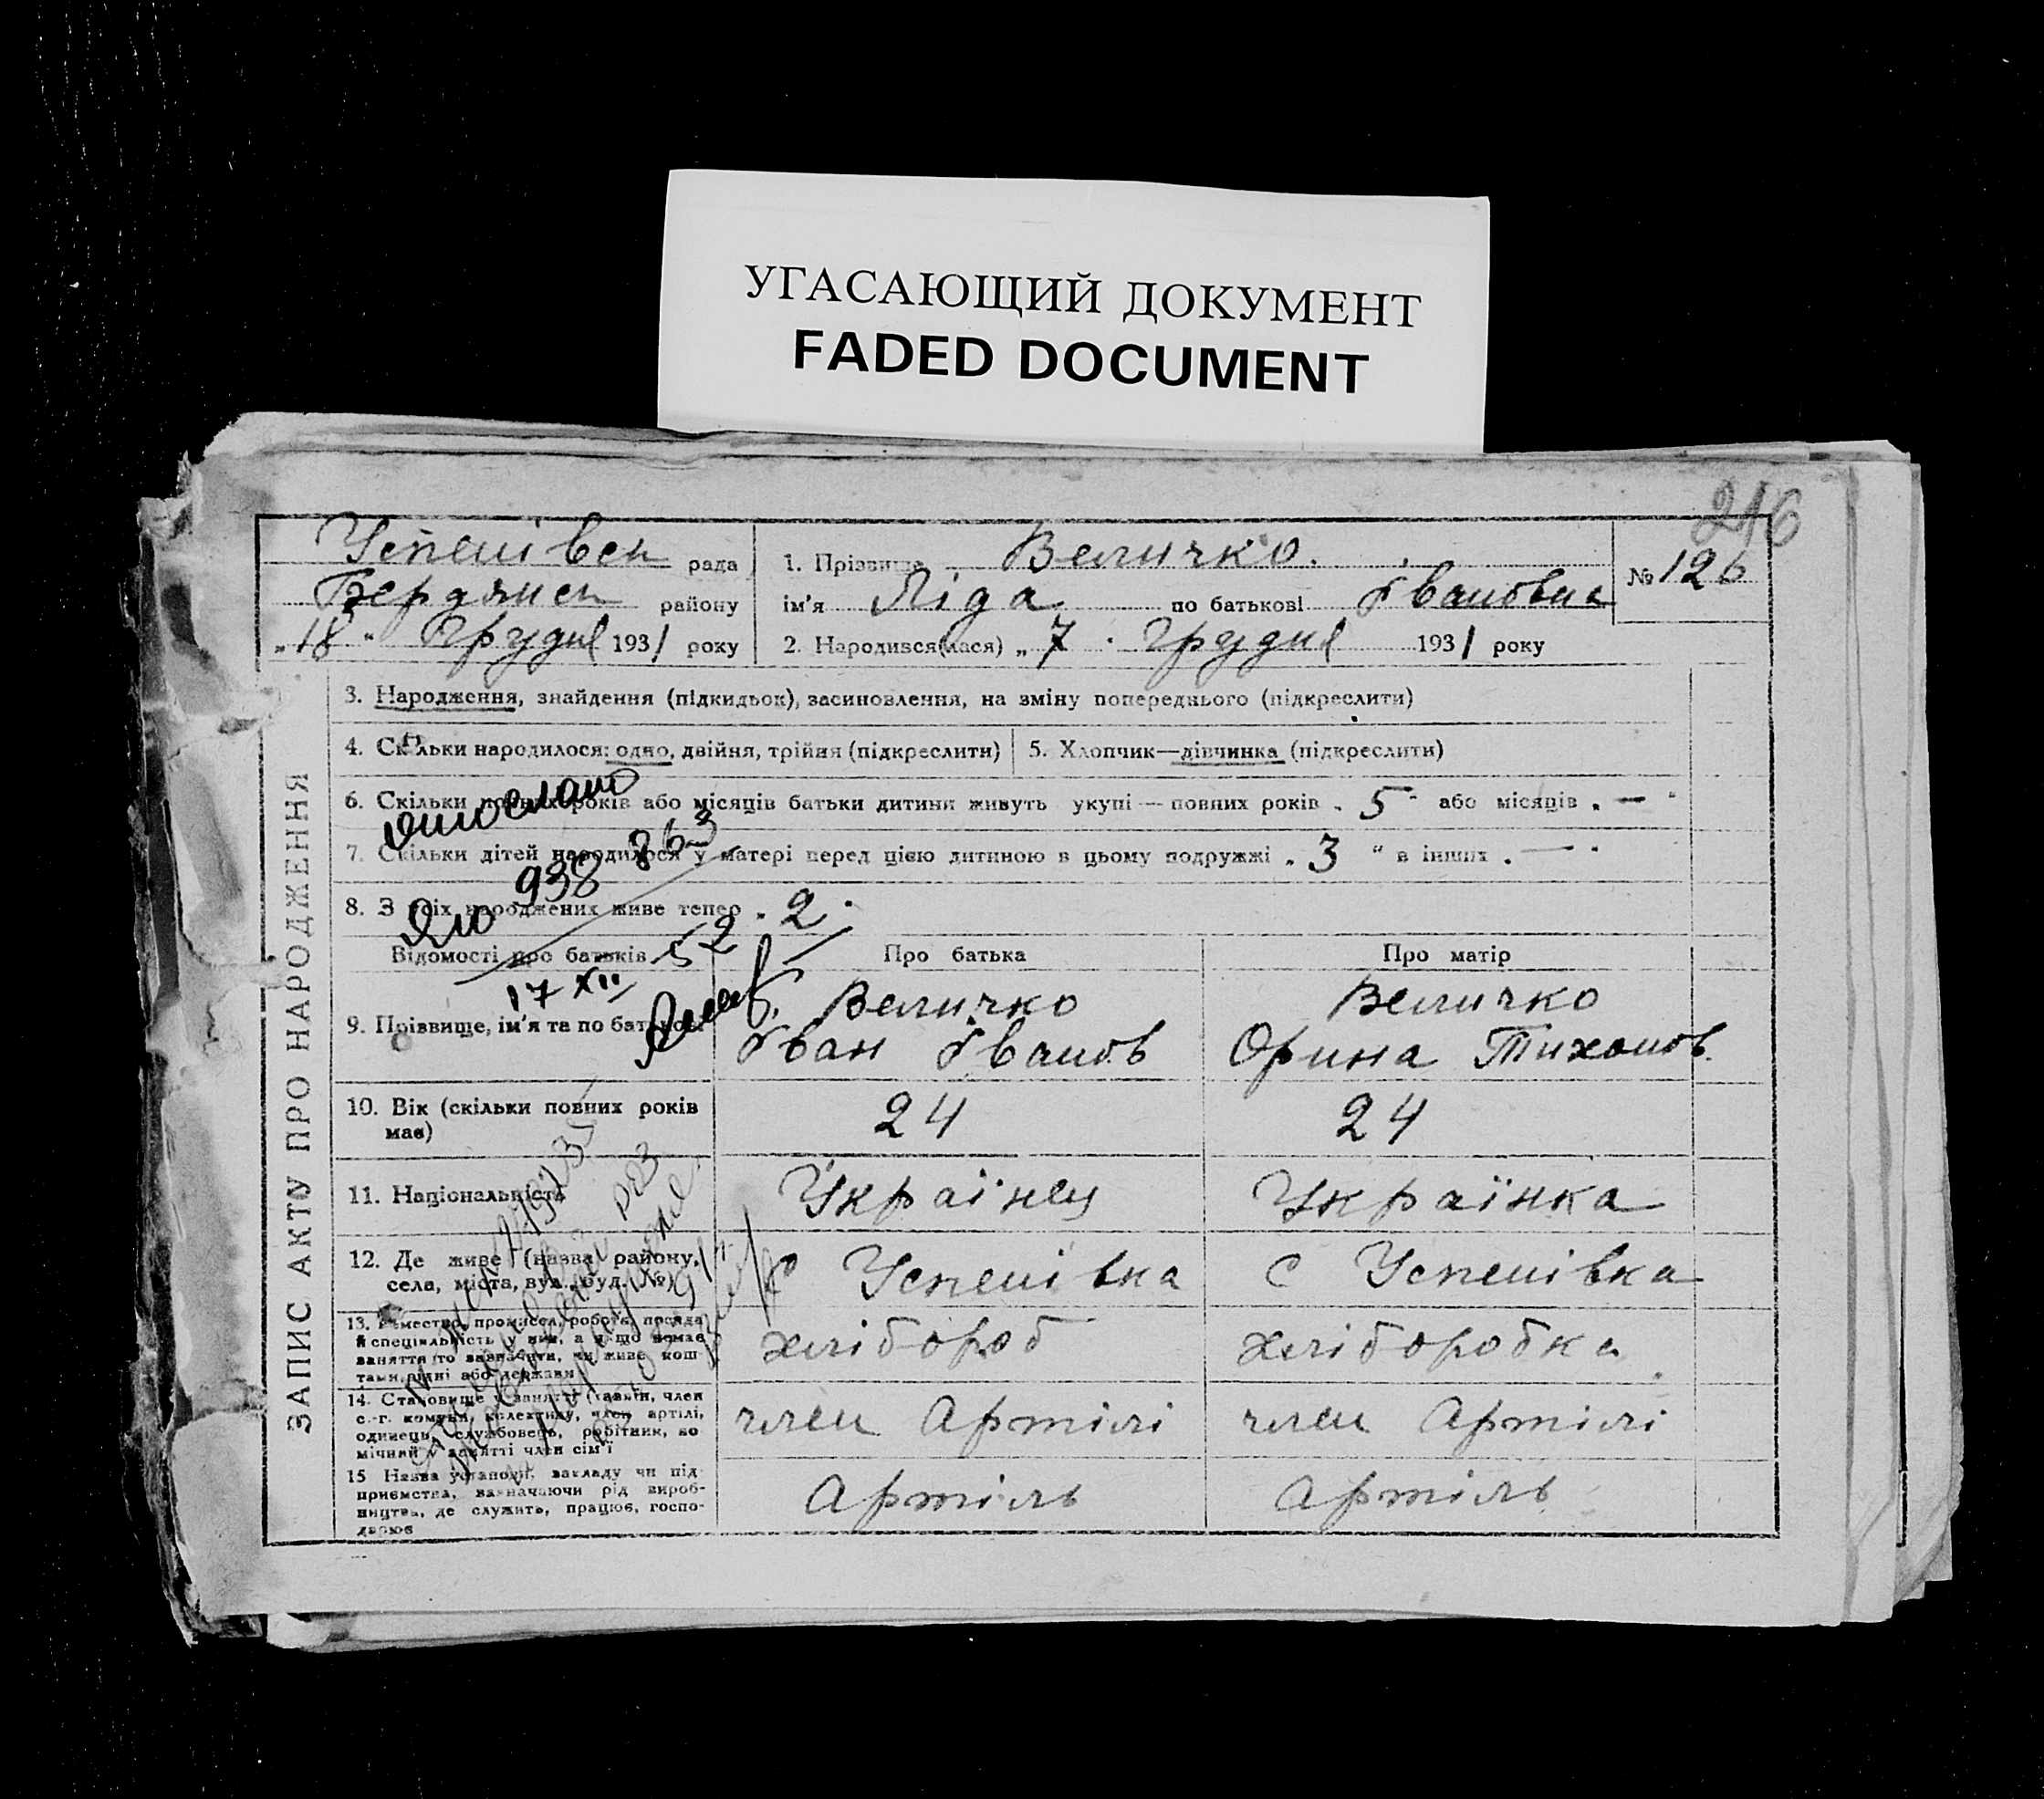 УГАСАЮЩИЙ ДОКУМЕНТ
FADED DOCUMENT
216
ЗАПИС АКТУ ПРО НАРОДЖЕННЯ
Успенівск рада
Бердянск району
„18" Грудня 1931 року
1. Прізвище Величко.
ім'я Ліда по батькові Івановна
2. Народився(лася) „7" Грудня 1931 року
№ 126
3. Народження, знайдення (підкидьок), засиновлення, на зміну попереднього (підкреслити)
4. Скільки народилося: одно, двійня, трійня (підкреслити)
5. Хлопчик—дівчинка (підкреслити)
6. Скільки повних років або місяців батьки дитини живуть укупі — повних років „5" або місяців „—"
7. Скільки дітей народилося у матері перед цією дитиною в цьому подружжі „3" в інших „—"
8. З усіх народжених живе тепер „2"
938 863
52
17 XII
Відомості про батьків
Про батька
Про матір
9. Прізвище, ім'я та по батькові
Величко
Іван Іванов
Величко
Орина Тихонов.
10. Вік (скільки повних років
має)
24
24
11. Національність
Українец
Українка
12. Де живе (назва району,
села, міста, вул., буд. №)
с Успенівка
с Успенівка
13. Ремество, промисел, робота, посада
й спеціяльність у них, а якщо немає
заняття то визначити, чи живе кош
тами рідні або держави
хлібороб
хліборобка
14. Становище у занятті (хазяїн, член
с.-г. комуни, колективу, член артілі,
одинець, службовець, робітник, по
мічний у занятті член сім'ї
член Артілі
член Артілі
15 Назва установи, закладу чи під
приємства, зазначаючи рід вироб-
ництва, де служить, працює, госпо-
дарює
Артіль
Артіль